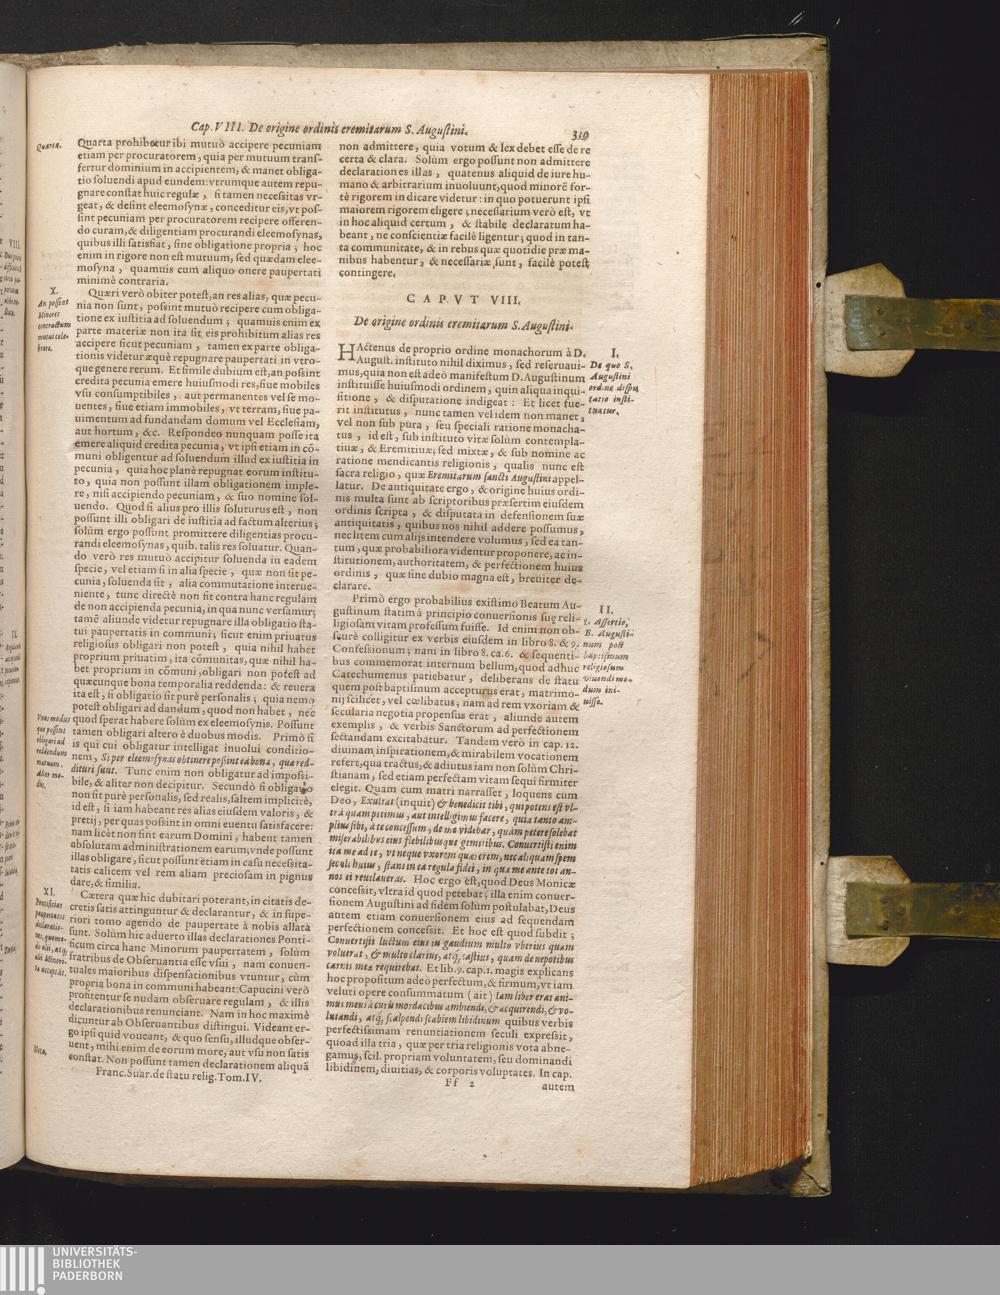 Cap. VIII. De origine ordinis eremitarum S. Augustini. 319
Quarta.
Quarta prohibetur ibi mutuò accipere pecuniam
etiam per procuratorem, quia per mutuum trans-
fertur dominium in accipientem, & manet obliga-
tio soluendi apud eundem: vtrumque autem repu-
gnare constat huic regulæ, si tamen necessitas vr-
geat, & desint eleemosynæ, conceditur eis, vt pos-
sint pecuniam per procuratorem recipere offeren-
do curam, & diligentiam procurandi eleemosynas,
quibus illi satisfiat, sine obligatione propria; hoc
enim in rigore non est mutuum, sed quædam elee-
mosyna, quamuis cum aliquo onere paupertati
minimè contraria.
X.
An possint
Minores
contractum
mutui cele-
brare.
Quæri verò obiter potest, an res alias, quæ pecu-
nia non sunt, possint mutuò recipere cum obliga-
tione ex iustitia ad soluendum; quamuis enim ex
parte materiæ non ita sit eis prohibitum alias res
accipere sicut pecuniam, tamen ex parte obliga-
tionis videtur æquè repugnare paupertati in vtro-
que genere rerum. Et simile dubium est, an possint
credita pecunia emere huiusmodi res, siue mobiles
vsu consumptibiles, aut permanentes vel se mo-
uentes, siue etiam immobiles, vt terram, siue pa-
uimentum ad fundandam domum vel Ecclesiam,
aut hortum, &c. Respondeo nunquam posse ita
emere aliquid credita pecunia, vt ipsi etiam in cõ-
muni obligentur ad soluendum illud ex iustitia in
pecunia, quia hoc planè repugnat eorum institu-
to, quia non possunt illam obligationem imple-
re, nisi accipiendo pecuniam, & suo nomine sol-
uendo. Quod si alius pro illis soluturus est, non
possunt illi obligari de iustitia ad factum alterius;
solùm ergo possunt promittere diligentias procu-
randi eleemosynas, quib. talis res soluatur. Quan-
do verò res mutuò accipitur soluenda in eadem
specie, vel etiam si in alia specie, quæ non sit pe-
cunia, soluenda sit, alia commutatione interue-
niente, tunc directè non fit contra hanc regulam
de non accipienda pecunia, in qua nunc versamur;
tamẽ aliunde videtur repugnare illa obligatio sta-
tui paupertatis in communi; sicut enim priuatus
religiosus obligari non potest, quia nihil habet
proprium priuatim, ita cõmunitas, quæ nihil ha-
bet proprium in cõmuni, obligari non potest ad
quæcunque bona temporalia reddenda: & reuera
ita est, si obligatio sit purè personalis; quia nemo
potest obligari ad dandum, quod non habet, nec
quod sperat habere solùm ex eleemosynis. Possunt
tamen obligari altero è duobus modis. Primò si
is qui cui obligatur intelligat inuolui conditio-
nem, Si per eleemosynas obtinere possint ea bona, quæ red-
dituri sunt. Tunc enim non obligatur ad impossi-
bile, & aliter non decipitur. Secundò si obligatio
non sit purè personalis, sed realis, saltem implicitè,
id est, si iam habeant res alias eiusdem valoris, &
pretij, per quas possint in omni euentu satisfacere:
nam licèt non sint earum Domini, habent tamen
absolutam administrationem earum; vnde possunt
illas obligare, sicut possunt etiam in casu necessita-
tatis calicem vel rem aliam preciosam in pignus
dare, & similia.
Vnus modus
quo possint
obligari ad
reddendum
mutuum.
Alter mo-
dus.
XI.
Pontificias
paupertatis
declaratio-
nes, quomo-
do illi, atq;
alij Minori-
tæ accepāt.
Cætera quæ hic dubitari poterant, in citatis de-
cretis satis attinguntur & declarantur, & in supe-
riori tomo agendo de paupertate à nobis allata
sunt. Solùm hic aduerto illas declarationes Ponti-
ficum circa hanc Minorum paupertatem, solùm
fratribus de Obseruantia esse vsui, nam conuen-
tuales maioribus dispensationibus vtuntur, cùm
propria bona in communi habeant: Capucini verò
profitentur se nudam obseruare regulam, & illis
declarationibus renunciant. Nam in hoc maximè
dicuntur ab Obseruantibus distingui. Videant er-
go ipsi quid voueant, & quo sensu, illudque obser-
uent, mihi enim de eorum more, aut vsu non satis
constat. Non possunt tamen declarationem aliquã
Nota.
Franc. Suar. de statu relig. Tom. IV.
non admittere, quia votum & lex debet esse de re
certa & clara. Solùm ergo possunt non admittere
declarationes illas, quatenus aliquid de iure hu-
mano & arbitrarium inuoluunt, quod minorẽ for-
tè rigorem indicare videtur: in quo potuerunt ipsi
maiorem rigorem eligere; necessarium verò est, vt
in hoc aliquid certum, & stabile declaratum ha-
beant, ne conscientiæ facilè ligentur; quod in tan-
ta communitate, & in rebus quæ quotidie præ ma-
nibus habentur, & necessariæ sunt, facilè potest
contingere.
CAPVT VIII.
De origine ordinis eremitarum S. Augustini.
I.
De quo S.
Augustini
ordine dispu
tatio insti-
tuatur.
HActenus de proprio ordine monachorum à D.
August. instituto nihil diximus, sed reseruaui-
mus, quia non est adeò manifestum D. Augustinum
instituisse huiusmodi ordinem, quin aliqua inqui-
sitione, & disputatione indigeat: Et licet fue-
rit institutus, nunc tamen vel idem non manet,
vel non sub pura, seu speciali ratione monacha-
tus, id est, sub instituto vitæ solùm contempla-
tiuæ, & Eremitiuæ; sed mixtæ, & sub nomine ac
ratione mendicantis religionis, qualis nunc est
sacra religio, quæ Eremitarum sancti Augustini appel-
latur. De antiquitate ergo, & origine huius ordi-
nis multa sunt ab scriptoribus præsertim eiusdem
ordinis scripta, & disputata in defensionem suæ
antiquitatis, quibus nos nihil addere possumus,
nec litem cum alijs intendere volumus, sed ea tan-
tum, quæ probabiliora videntur proponere, ac in-
stitutionem, authoritatem, & perfectionem huius
ordinis, quæ sine dubio magna est, breuiter de-
clarare.
II.
1. Assertio,
B. Augusti-
num post
baptismum
religiosum
viuendi mo-
dum ini-
uisse.
Primò ergo probabilius existimo Beatum Au-
gustinum statim à principio conuersionis suę reli-
ligiosam vitam professum fuisse. Id enim non ob-
scurè colligitur ex verbis eiusdem in libro 8. & 9.
Confessionum; nam in libro 8. ca. 6. & sequenti-
bus commemorat internum bellum, quod adhuc
Catechumenus patiebatur, deliberans de statu
quem post baptismum accepturus erat, matrimo-
nij scilicet, vel cœlibatus; nam ad rem vxoriam &
secularia negotia propensus erat, aliunde autem
exemplis, & verbis Sanctorum ad perfectionem
sectandam excitabatur. Tandem verò in cap. 12.
diuinam inspirationem, & mirabilem vocationem
refert, qua tractus, & adiutus iam non solùm Chri-
stianam, sed etiam perfectam vitam sequi firmiter
elegit. Quam cum matri narrasset, loquens cum
Deo, Exultat (inquit) & benedicit tibi, qui potens est vl-
tra quàm petimus, aut intelligimus facere, quia tanto am-
plius sibi, à te concessum, de me videbat, quàm petere solebat
miserabilibus eius flebilibusque gemitibus. Conuertisti enim
ita me ad te, vt neque vxorem quærerem, nec aliquam spem
seculi huius, stans in ea regula fidei, in qua me ante tot an-
nos ei reuelaueras. Hoc ergo est, quod Deus Monicæ
concessit, vltra id quod petebat; illa enim conuer-
sionem Augustini ad fidem solùm postulabat, Deus
autem etiam conuersionem eius ad sequendam
perfectionem concessit. Et hoc est quod subdit;
Conuertisti luctum eius in gaudium multo vberius quam
voluerat, & multo clarius, atq; castius, quam de nepotibus
carnis meæ requirebat. Et lib. 9. cap. 1. magis explicans
hoc propositum adeò perfectum, & firmum, vt iam
veluti opere consummatum (ait) Iam liber erat ani-
mus meus à curis mordacibus ambiendi, & acquirendi, & vo-
lutandi, atq; scalpendi scabiem libidinum quibus verbis
perfectissimam renuntiationem seculi expressit,
quoad illa tria, quæ per tria religionis vota abne-
gamus, scil. propriam voluntatem, seu dominandi
libidinem, diuitias, & corporis voluptates. In cap.
Ff 2 autem
UNIVERSITÄTS-
BIBLIOTHEK
PADERBORN